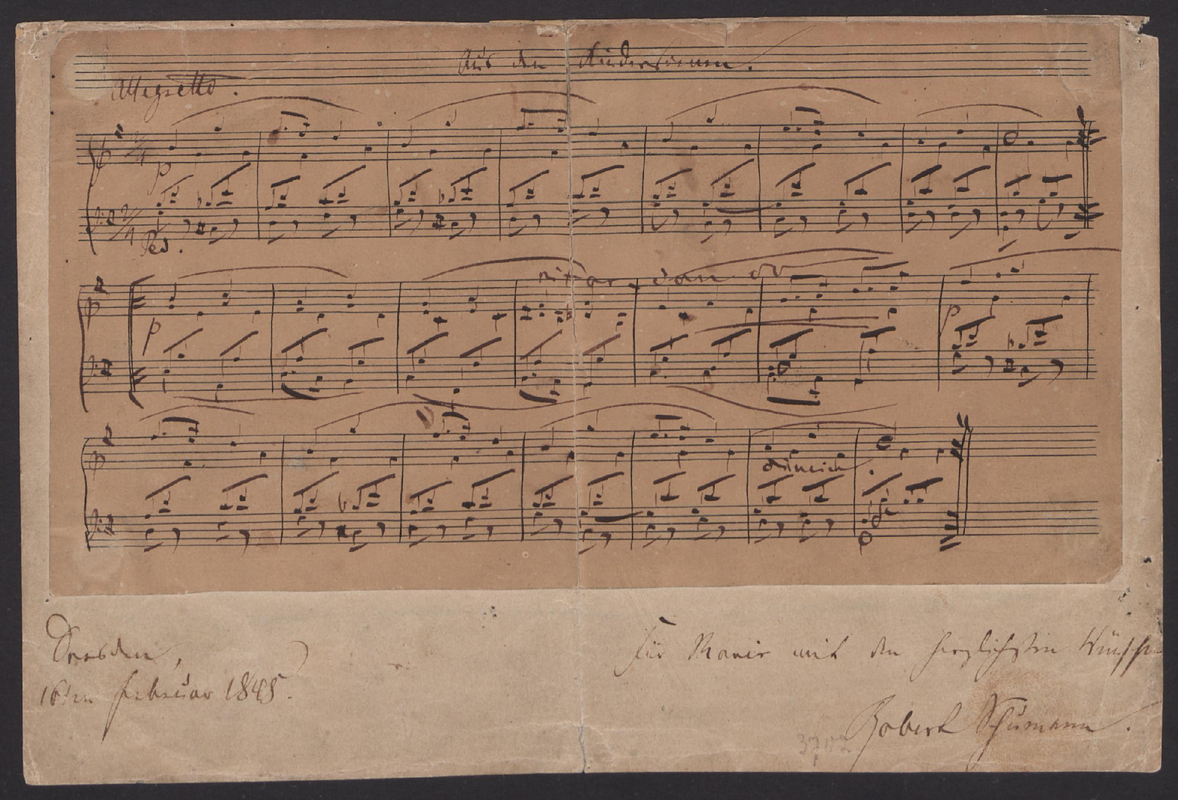 Aus den Kinderscenen.
Allegretto.
2/4
p
2/4
Ped.
ritar - dan do
p
p
Dresden,
16ten Februar 1845.
Für Marie mit den herzlichsten Wünschen
Robert Schumann.